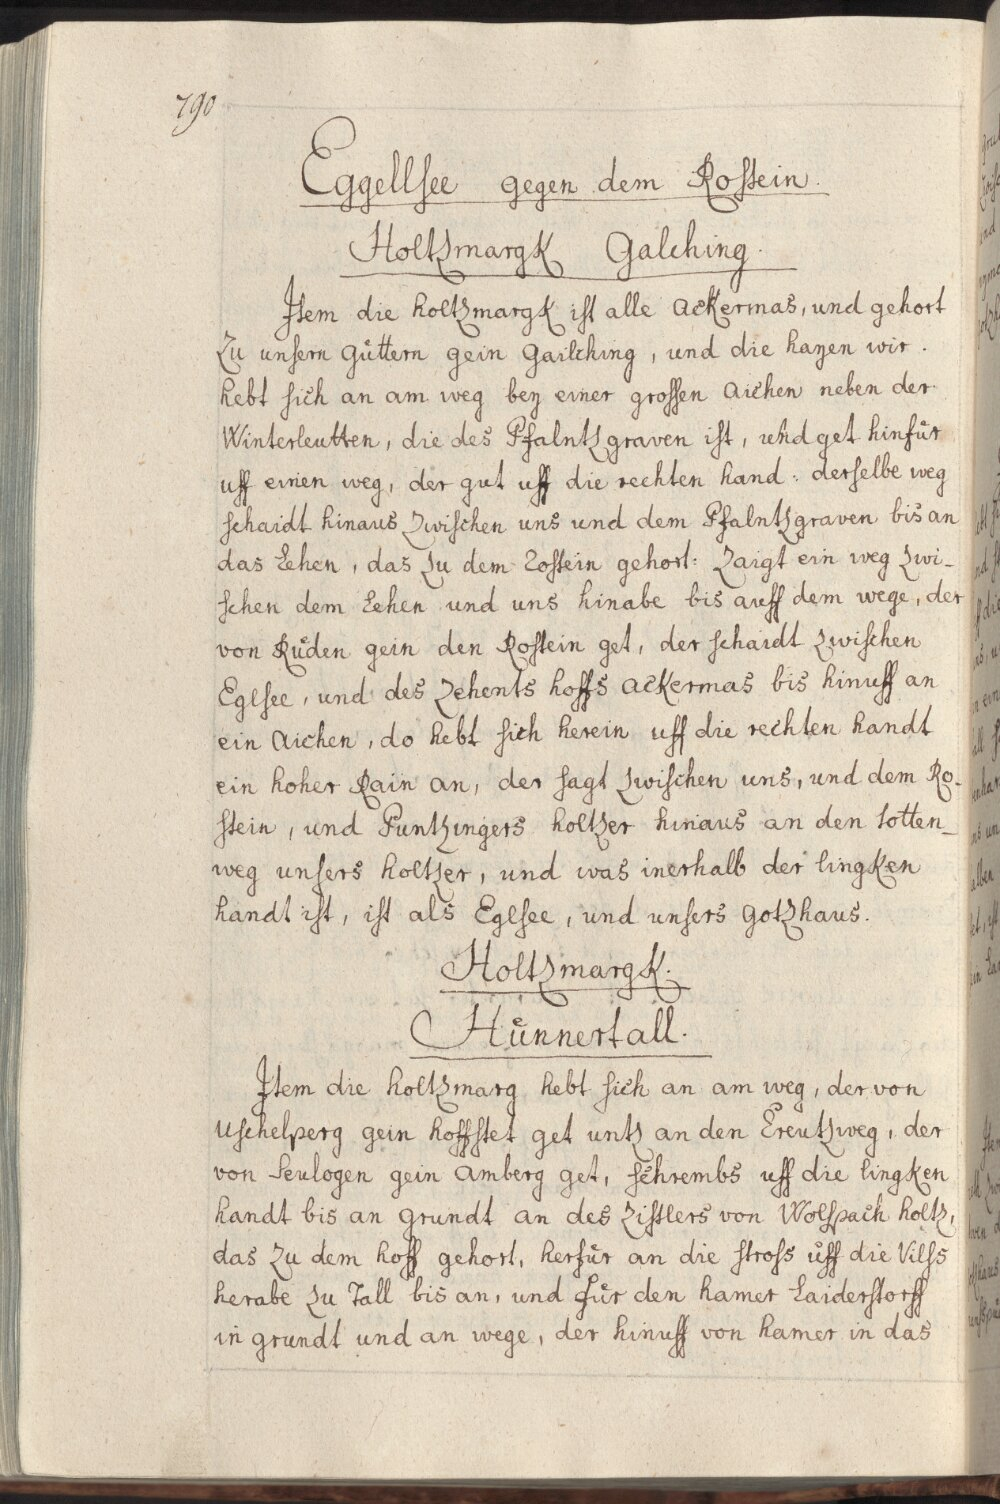 790
Eggellsee gegen dem Rostein.
Holtzmargk Galching.
Item die holtzmargk ist alle ackermas, und gehort
zu unsern gůttern gein gailching, und die hayen wir.
hebt sich an am weg bey einer grossen aichen neben der
Winterleutten, die des Pfalntzgraven ist, und get hinfůr
uff einen weg, der gut uff die rechten hand: derselbe weg
schaidt hinaus zwischen uns und dem Pfalntzgraven bis an
das Lehen, das zu dem Rostein gehort: zaigt ein weg zwi-
schen dem Lehen und uns hinabe bis auff dem wege, der
von Růden gein den Rostein get, der schaidt zwischen
Eglsee, und des zehents hoffs ackermas bis hinuff an
ein aichen, do hebt sich herein uff die rechten handt
ein hoher Rain an, der sagt zwischen uns, und dem Ro-
stein, und Puntzingers holtzer hinaus an den totten-
weg unsers holtzer, und was inerhalb der lingken
handt ist, ist als Eglsee, und unsers gotzhaus.
Holtzmargk.
Hůnnertall.
Item die holtzmarg hebt sich an am weg, der von
Uschelperg gein hoffstet get untz an den Creutzweg, der
von Leulogen gein amberg get, schrembs uff die lingken
handt bis an grundt an des Zistlers von Wolspach holtz,
das zu dem hoff gehort, herfůr an die stross ůff die Vilss
herabe zu Tall bis an, und fůr den hamer Laiderstorff
in grundt und an wege, der hinuff von hamer in das